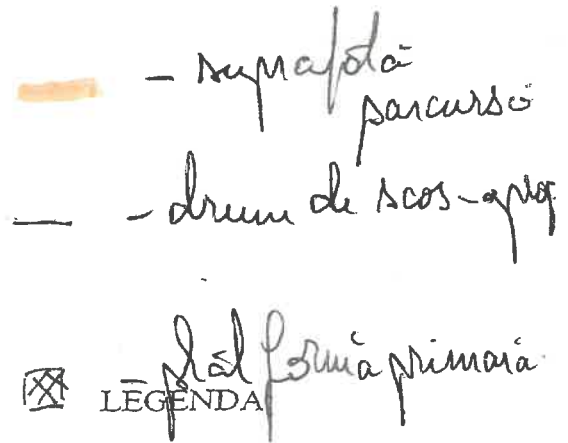 - suprafață
parcursă
- drum de scos-aprop
- platformă primară
LEGENDA